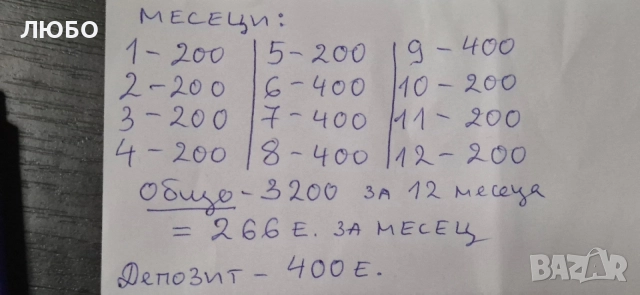 ЛЮБО
МЕСЕЦИ:
1 - 200 | 5 - 200 | 9 - 400
2 - 200 | 6 - 400 | 10 - 200
3 - 200 | 7 - 400 | 11 - 200
4 - 200 | 8 - 400 | 12 - 200
Общо - 3200 ЗА 12 месеца
= 266 Е. ЗА МЕСЕЦ
Депозит - 400 Е.
BAZAR